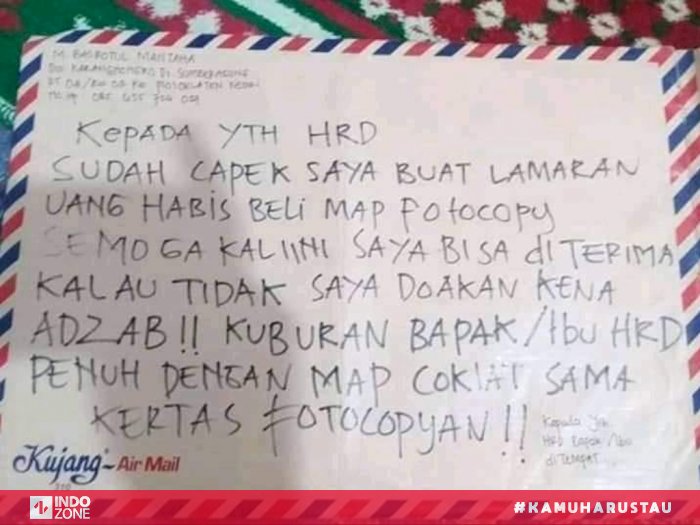 M. BASROTUL MANTAHA
KEPADA YTH HRD
SUDAH CAPEK SAYA BUAT LAMARAN
UANG HABIS BELI MAP fotocopy
SEMOGA KALI INI SAYA BISA di TERIMA
KALAU TIDAK SAYA DOAKAN KENA
ADZAB!! KUBURAN BAPAK/Ibu HRD
PENUH DENGAN MAP COKLAT SAMA
KERTAS FOTOCOPYAN!!
Kepada Yth
HRD Bapak/Ibu
di Tempat
Kujang Air Mail
INDO
ZONE
#KAMUHARUSTAU